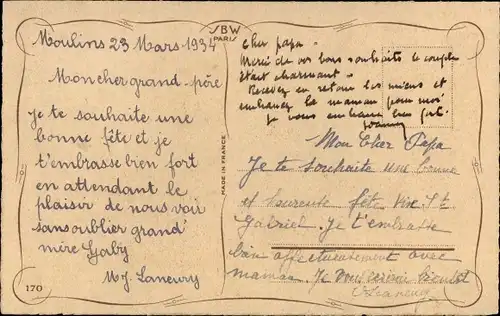 Moulins 23 Mars 1934
Mon cher grand-père
je te souhaite une
bonne fête et je
t'embrasse bien fort
en attendant le
plaisir de nous voir
sans oublier grand'
mère Gaby
170
SBW
PARIS
MADE IN FRANCE
Cher papa.
Merci de vos bons souhaits le couplet
était charmant.
Recevez en retour les miens et
embrassez la maman pour moi
je vous embrasse bien fort.
Mon Cher Papa
Je te souhaite une bonne
et heureuse fête
Gabriel. Je t'embrasse
bien affectueusement avec
maman. Je vous bientot